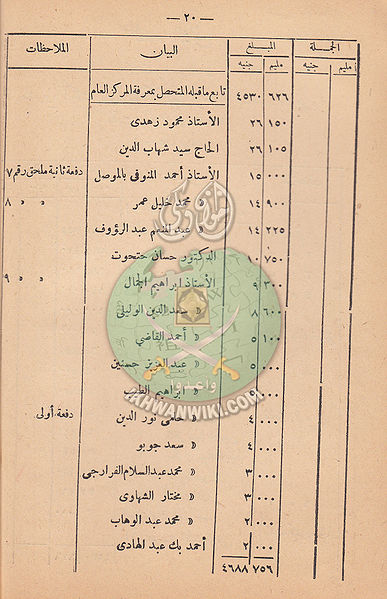 — ٢٠ —
الجملة المبلغ البيان الملاحظات
مليم جنيه مليم جنيه
٦٢٦ ٤٥٣٠ تابع ما قبله المتحصل بمعرفة المركز العام
١٥٠ ٢٦ الأستاذ محمود زهدى
١٠٥ ٢٦ الحاج سيد شهاب الدين
٠٠٠ ١٥ الأستاذ أحمد المنوفى بالموصل دفعة ثانية ملحق رقم ٧
٩٠٠ ١٤ » محمد خليل عمر » » ٨
٢٢٥ ١٤ » عبد المنعم عبد الرؤوف
٧٥٠ ١٠ الدكتور حسان حتحوت
٣٠٠ ٩ الأستاذ ابراهيم الجمال » » ٩
٦٠٠ ٨ » سعد الدين الوليلى
١٠٠ ٥ » أحمد القاضى
٠٠٠ ٥ » عبد العزيز حسنين
٠٠٠ » ابراهيم
٠٠٠ ٤ » حلمى نور الدين دفعة أولى
٠٠٠ ٤ » سعد جوبو
٠٠٠ ٣ » محمد عبد السلام الفرارجى
٠٠٠ ٣ » مختار الشهاوى
٠٠٠ ٢ » محمد عبد الوهاب
٠٠٠ ٢ أحمد بك عبد الهادى
٧٥٦ ٤٦٨٨
واعدوا
IKHWANWIKI.COM